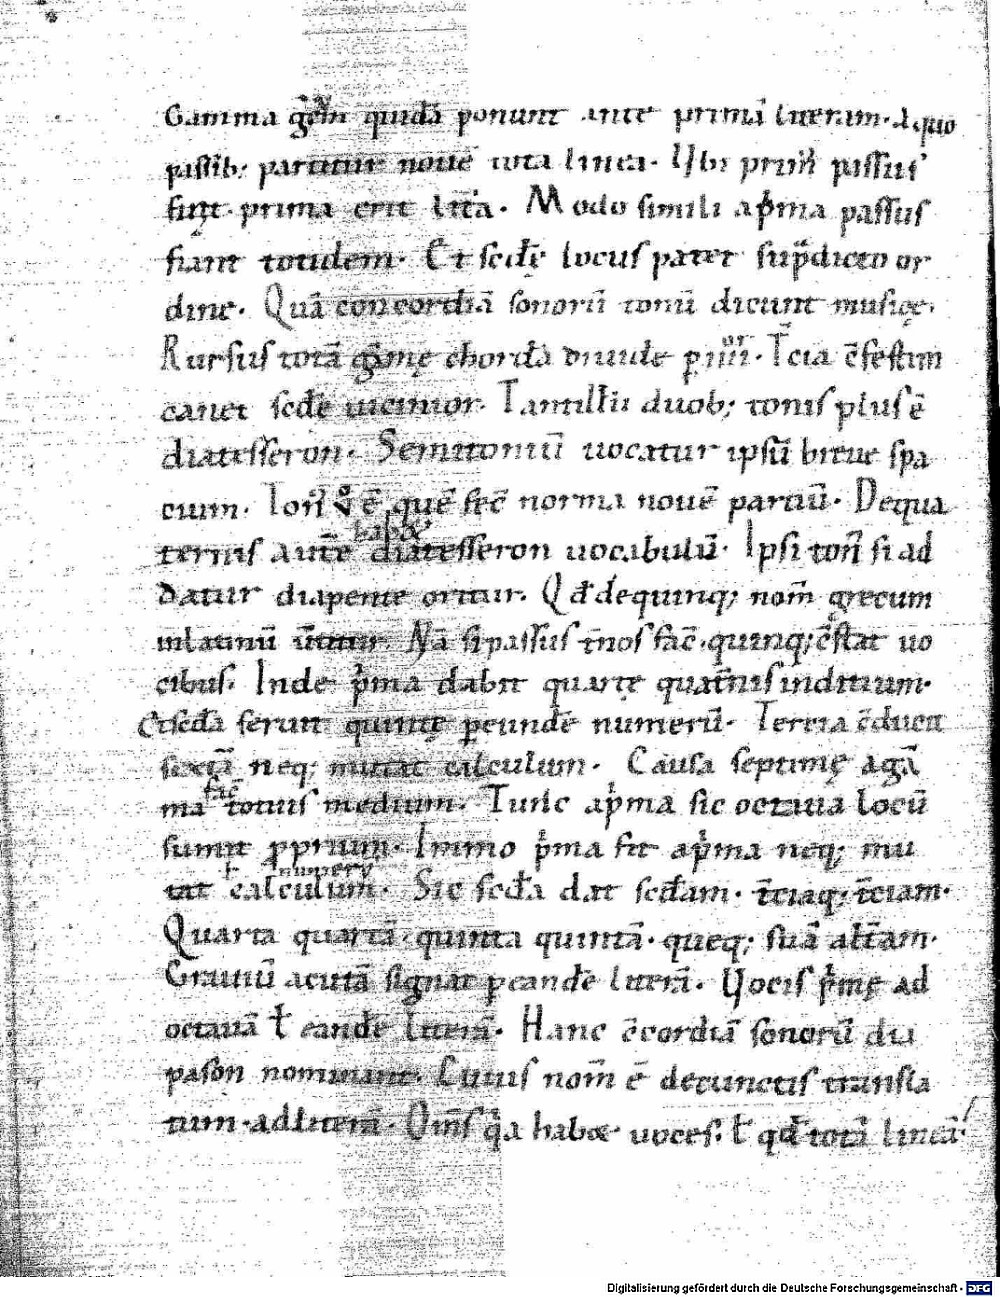 Gamma grecū quidā ponunt ante primā literam. A quo
passib; partitur nouē tota linea. Vbi prim' passus
finit. prima erit littā. Modo simili a pͥma passus
fiant totidem. Et scđe locus patet supͣdicto or
dine. Quā concordiā sonorū tonū dicunt musicę.
Rursus totā gāmę chordā diuide ꝑ iiiiᵒʳ. T̄cia ē festim
canet scđe uicinior. Tantillū duob; tonis plus ē
diatesseron. Semitoniū uocatur ipsū breue spa
cium. Ton' ē quē fec̄ norma nouē partiū. De qua
ternis autē habet diatesseron uocabulū. Ipsi ton̄ si ad
datur diapente oritur. Qđ de quinq; nom̄ grecum
in latinū ūtitur. Nā si passus t̄nos fac̄. quinq; c̄stat uo
cibus. Inde pͥma dabit quartę quat̄nis inditium.
Et scđa ferunt quintę ꝑ eundē numerū. Tertia ēducit
sextā neq; mutat calculum. Causa septimę agā
ma fac totius medium. Tunc a pͥma sic octaua locū
sumit ꝓprium. Immo pͥma fit a pͥma neq; mu
tat calculum ł numerū. Sic scđa dat scđam. t̄ciaq; t̄ciam.
Quarta quartā. quinta quintā. queq; suā alt̄am.
Grauiū acutā signat ꝑ eandē literā. Vocis pͥmę ad
octauā ł eandē literā. Hanc c̄cordiā sonorū dia
pason nominant. Cuius nom̄ ē de cunctis transla
tum. ad literā. Om̄s qͥa habet uoces. ł qđ totā lineā.
Digitalisierung gefördert durch die Deutsche Forschungsgemeinschaft - DFG